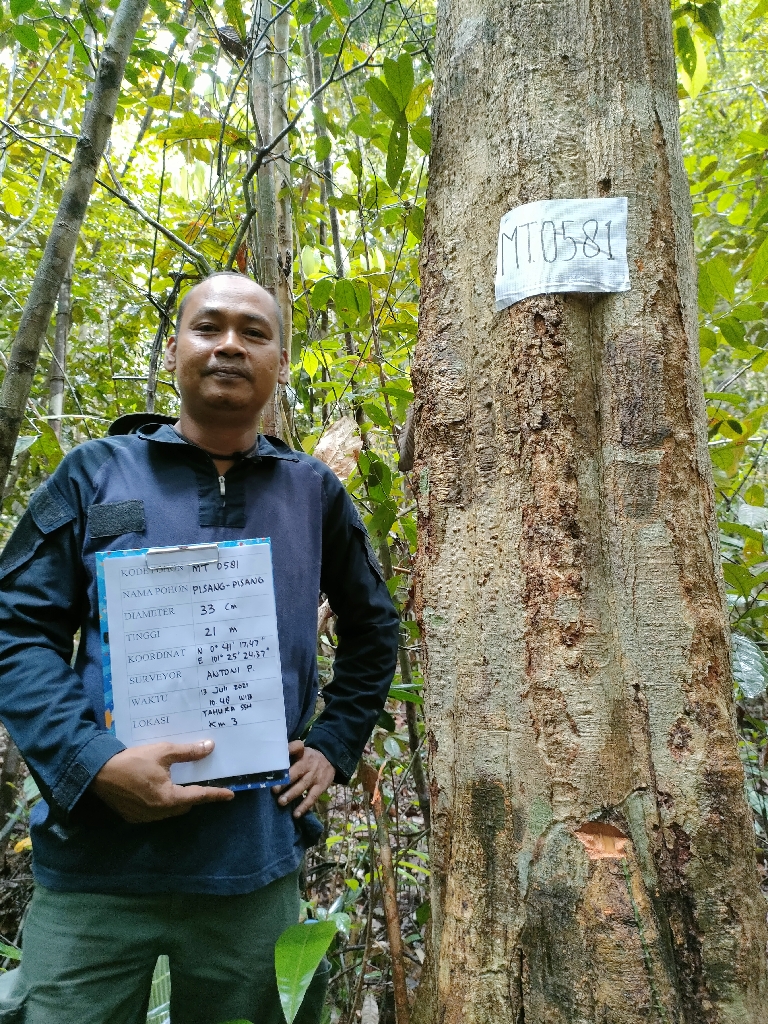 MT.0581
KODE POHON MT 0581
NAMA POHON PISANG-PISANG
DIAMETER 33 Cm
TINGGI 21 m
KOORDINAT N 0° 41' 17,47"
E 101° 25' 24.37"
SURVEYOR ANTONI P.
WAKTU 13 Juli 2021
10.48 WIB
LOKASI TAHURA SSH
Km 3